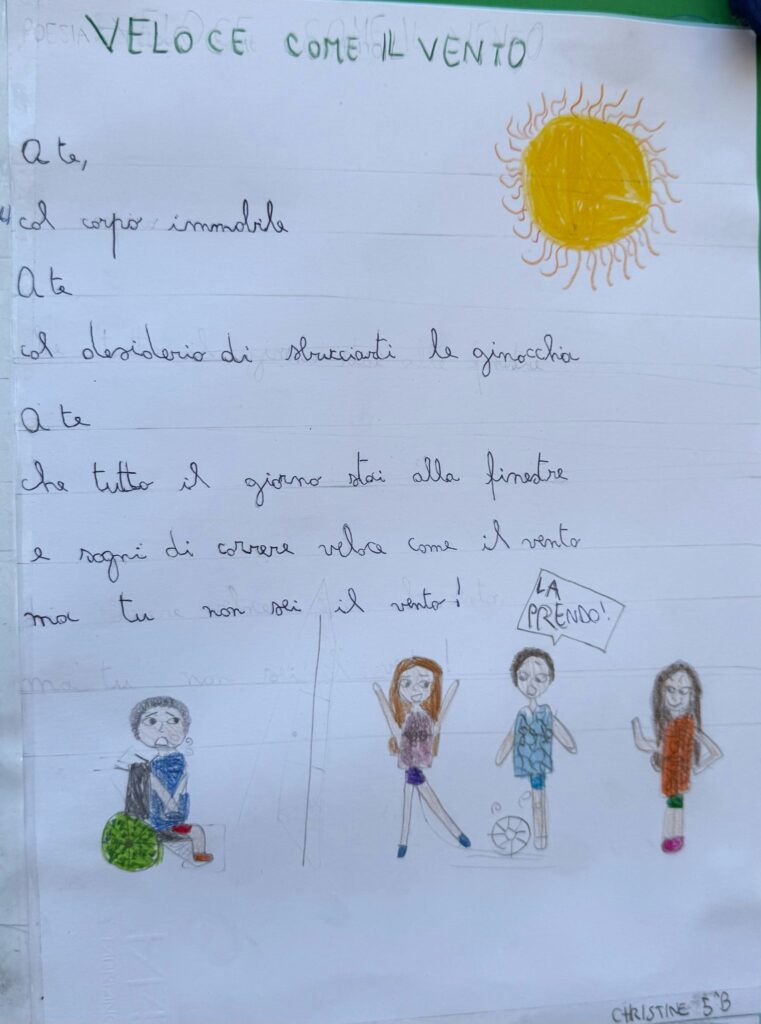 VELOCE COME IL VENTO
A te,
col corpo immobile
A te
col desiderio di sbucciarti le ginocchia
A te
che tutto il giorno stai alla finestre
e sogni di correre veloce come il vento
ma tu non sei il vento!
LA
PRENDO!
CHRISTINE 5^B